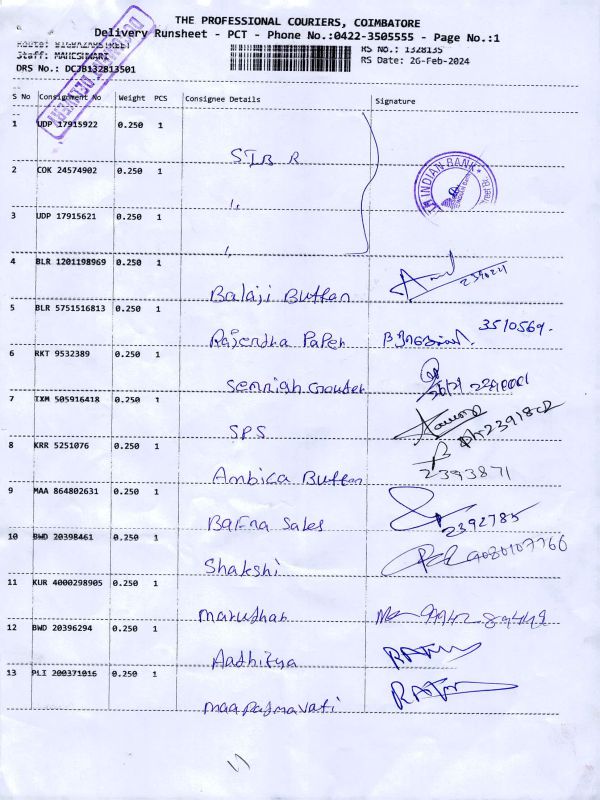 THE PROFESSIONAL COURIERS, COIMBATORE
Delivery Runsheet - PCT - Phone No.:0422-3505555 - Page No.:1
Route: BIGBAZARSTREET RS No.: 1328135
Staff: MAHESHWARI RS Date: 26-Feb-2024
DRS No.: DCJB132813501
S No Consignment No Weight PCS Consignee Details Signature
1 UDP 17915922 0.250 1
STBR
INDIAN BANK
2 COK 24574902 0.250 1
3 UDP 17915621 0.250 1
4 BLR 1201198969 0.250 1
Balaji Button
5 BLR 5751516813 0.250 1
Rajendra Paper 3510569.
6 RKT 9532389 0.250 1
7 TXM 505916418 0.250 1
SPS
8 KRR 5251076 0.250 1
Ambica Button 2393871
9 MAA 864802631 0.250 1
Bafna Sales 2392785
10 BWD 20398461 0.250 1
Shakshi
11 KUR 4000298905 0.250 1
Marudhar
12 BWD 20396294 0.250 1
Aadhitya
13 PLI 200371016 0.250 1
maapadmavati